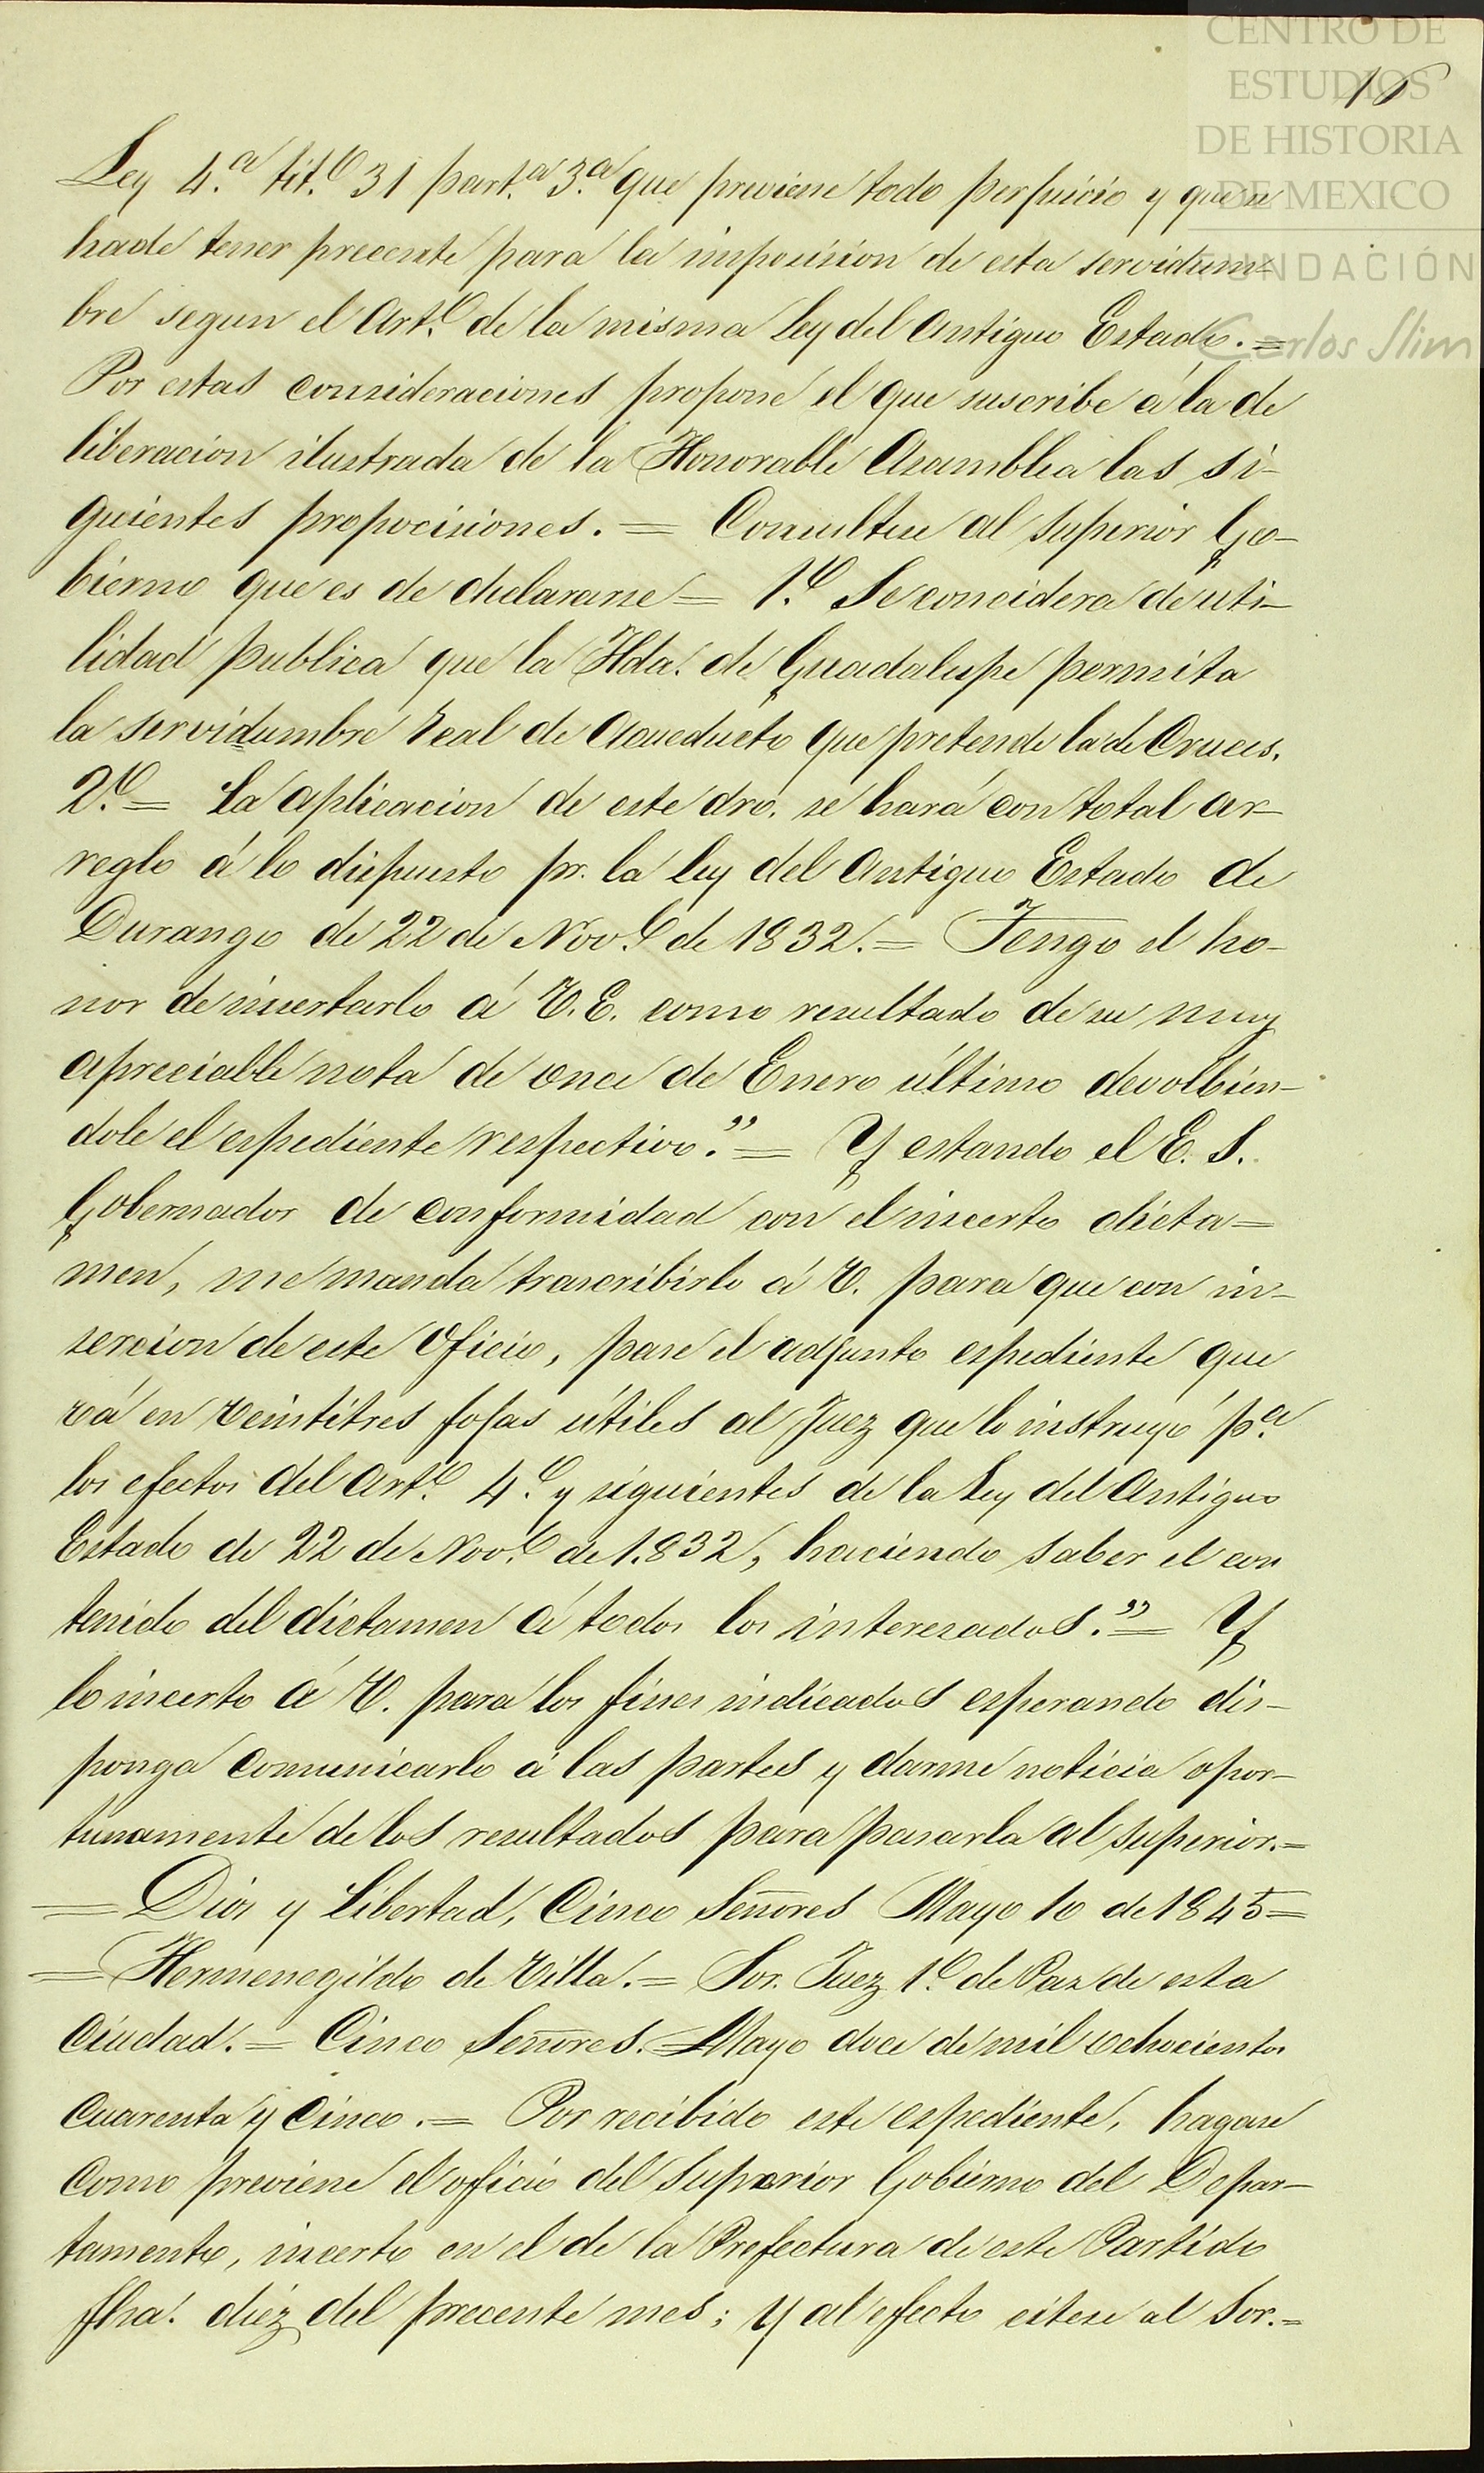 CENTRO DE
ESTUDIOS
DE HISTORIA
DE MEXICO
FUNDACIÓN
Carlos Slim
Ley 4.ª tit.º 31 part.ª 3.ª que previene todo perjuicio y que se
hade tener precente para la imposision de esta servidum=
bre segun el Art.º de la misma Ley del Antiguo Estado. =
Por estas consideraciones propone el que suscribe á la de
liberacion ilustrada de la Honorable Asamblea las si-
guientes propocisiones. = Consultese al superior Go-
bierno que es de declararse = 1.º Se concidera de uti-
lidad publica que la Hda. de Guadalupe permita
la servidumbre real de Acueducto que pretende la de Cruces.
2.º = La aplicacion de este dro. se hará con total ar-
reglo á lo dispuesto pr. la ley del Antiguo Estado de
Durango de 22 de Nov.e de 1832. = Tengo el ho-
nor de insertarlo á V. E. como resultado de su muy
apreciable nota de once de Enero último devolbien-
dole el espediente respectivo." = Y estando el E. S.
Gobernador de conformidad con el incerto dicta=
men, me manda trascribirlo á V. para que con in-
sercion de este oficio, pase el adjunto espediente que
vá en veintitres fojas útiles al Juez que lo instruyó p.ª
los efectos del Art.º 4.º y siguientes de la Ley del Antiguo
Estado de 22 de Nov.e de 1.832, haciendo saber el con
tenido del dictamen á todos los interezados." = Y
lo incerto á V. para los fines indicados esperando dis-
ponga comunicarlo á las partes y darme noticia opor-
tunamente de los resultados para pasarla al superior. =
= Dios y Libertad, Cinco Señores Mayo 10 de 1845 =
= Hermenegildo de Villa. = Sor. Juez 1.º de Paz de esta
Ciudad. = Cinco Señores. Mayo doce de mil ochocientos
cuarenta y cinco. = Por recibido este espediente, hagase
como previene el oficio del Superior Gobierno del Depar-
tamento, incerto en el de la Prefectura de este Partido
fha. diez del precente mes; y al efecto citese al Sor. =